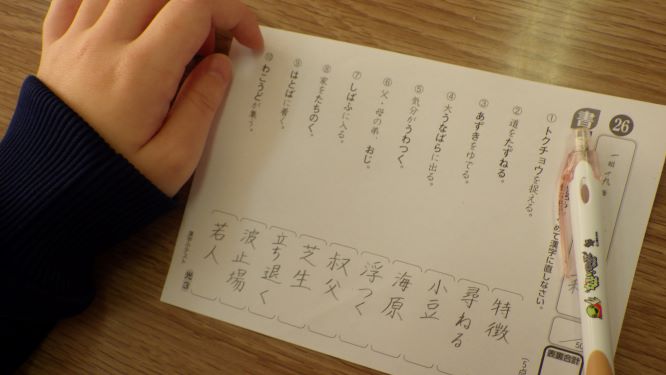 26
書
一組 一九番
めて漢字に直しなさい。
① トクチョウを捉える。
② 道をたずねる。
③ あずきをゆでる。
④ 大うなばらに出る。
⑤ 気分がうわつく。
⑥ 父・母の弟、おじ。
⑦ しばふに入る。
⑧ 家をたちのく。
⑨ はとばに着く。
⑩ わこうどが集う。
特徴
尋ねる
小豆
海原
浮つく
叔父
芝生
立ち退く
波止場
若人
(5点
50
表裏合計
漢字小テスト 光③